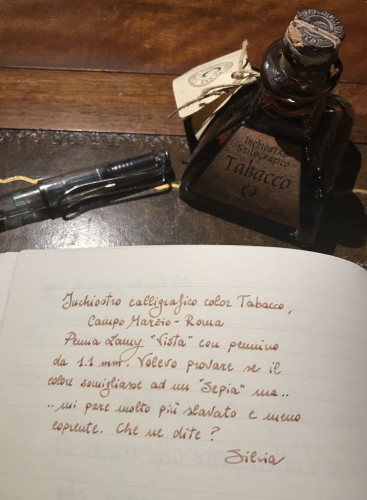 Inchiostro
Stilografico
Tabacco
Inchiostro calligrafico color Tabacco,
Campo Marzio - Roma
Penna Lamy "Vista" con pennino
da 1.1 mm. Volevo provare se il
colore somigliasse ad un "Sepia" ma..
..mi pare molto più slavato e meno
coprente. Che ne dite?
Silvia